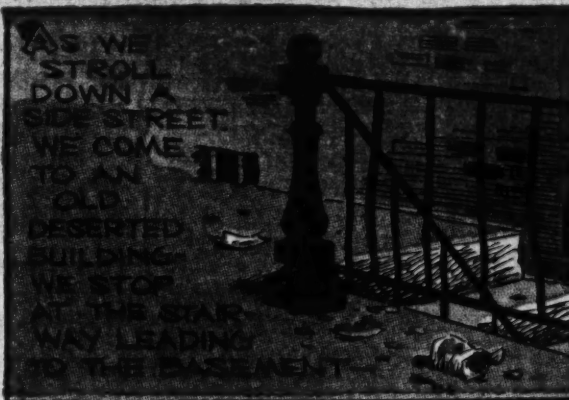 AS WE
STROLL
DOWN A
SIDE STREET
WE COME
TO AN
OLD
DESERTED
BUILDING-
WE STOP
AT THE STAIR
WAY LEADING
TO THE BASEMENT